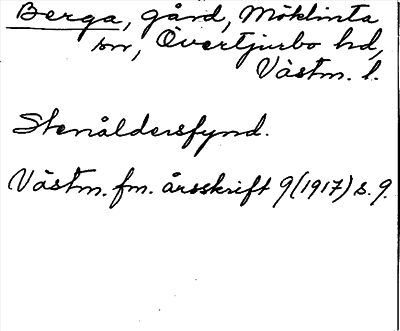 Berga, gård, Möklinta
sn, Övertjurbo hd,
Västm. l.
Stenåldersfynd.
Västm. fm. årsskrift 9(1917) s. 9.